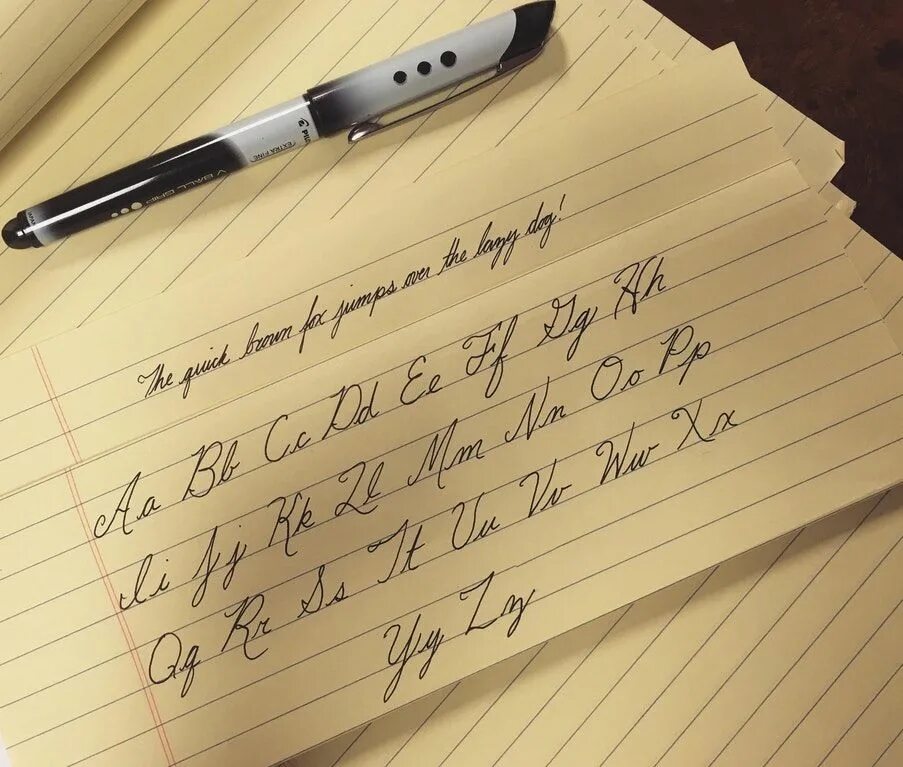 PILOT
EXTRA FINE
V BALL GRIP
JAPAN
The quick brown fox jumps over the lazy dog!
Aa Bb Cc Dd Ee Ff Gg Hh
Ii Jj Kk Ll Mm Nn Oo Pp
Qq Rr Ss Tt Uu Vv Ww Xx
Yy Zz